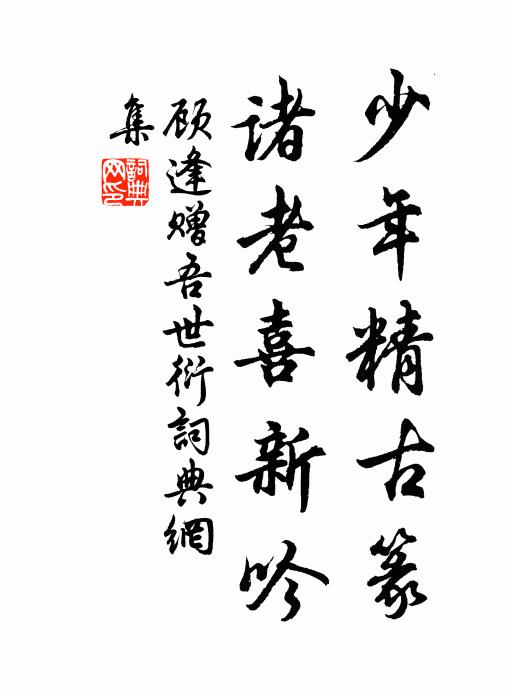 少年精古篆
诸老喜新吟
顾逢赠吾世衍詞典網
集
詞典網印